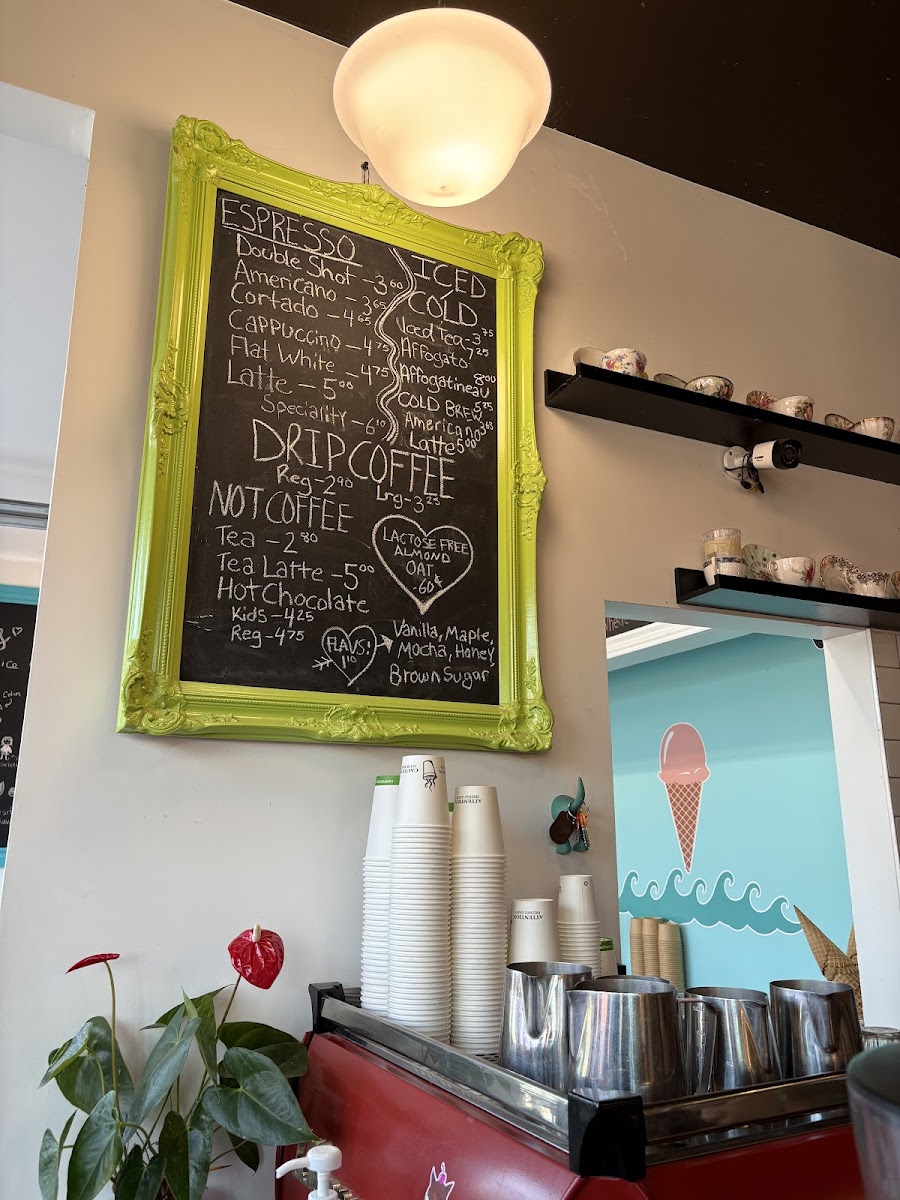 ESPRESSO
Double Shot - 3 60
Americano - 3 65
Cortado - 4 65
CAPPUCCINO - 4 75
Flat White - 4 75
Latte - 5 00
Speciality - 6 10
ICED
COLD
Iced Tea - 3 75
Affogato 7 25
Affogatineau 8 00
COLD BREW 5 25
Americano 3 65
Latte 5 00
DRIP COFFEE
Reg - 2 90
Lrg - 3 25
NOT COFFEE
Tea - 2 80
Tea Latte - 5 00
Hot Chocolate
Kids - 4 25
Reg - 4 75
LACTOSE FREE
ALMOND
OAT
.60¢
FLAVS!
1 10
Vanilla, Maple,
Mocha, Honey
Brown Sugar
ice
ATTENTION
ATTENTION
ATTENTION